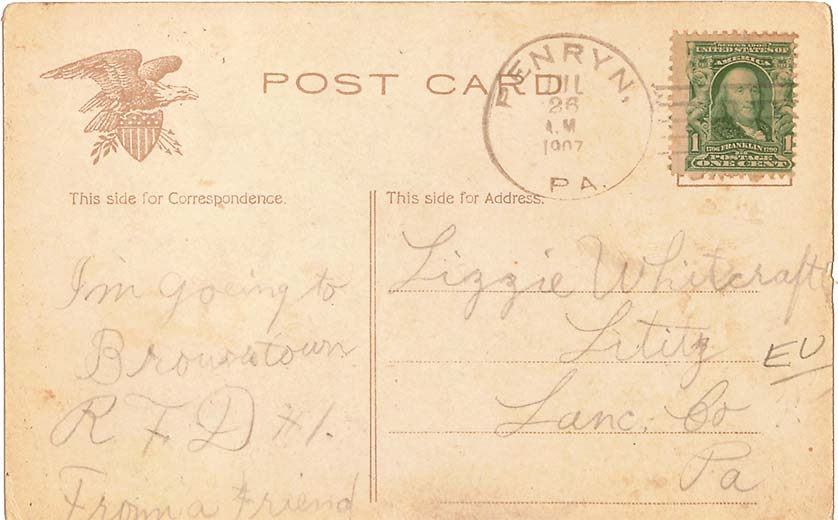 POST CARD
PENRYN,
JUL
26
A.M
1907
PA.
SERIES 1902
UNITED STATES OF
AMERICA
1 FRANKLIN 1
POSTAGE
ONE CENT
This side for Correspondence.
I'm goeing to
Brownstown
R F D #1.
From a Friend
This side for Address.
Lizzie Whitcraft
Lititz
EU
Lanc. Co
Pa